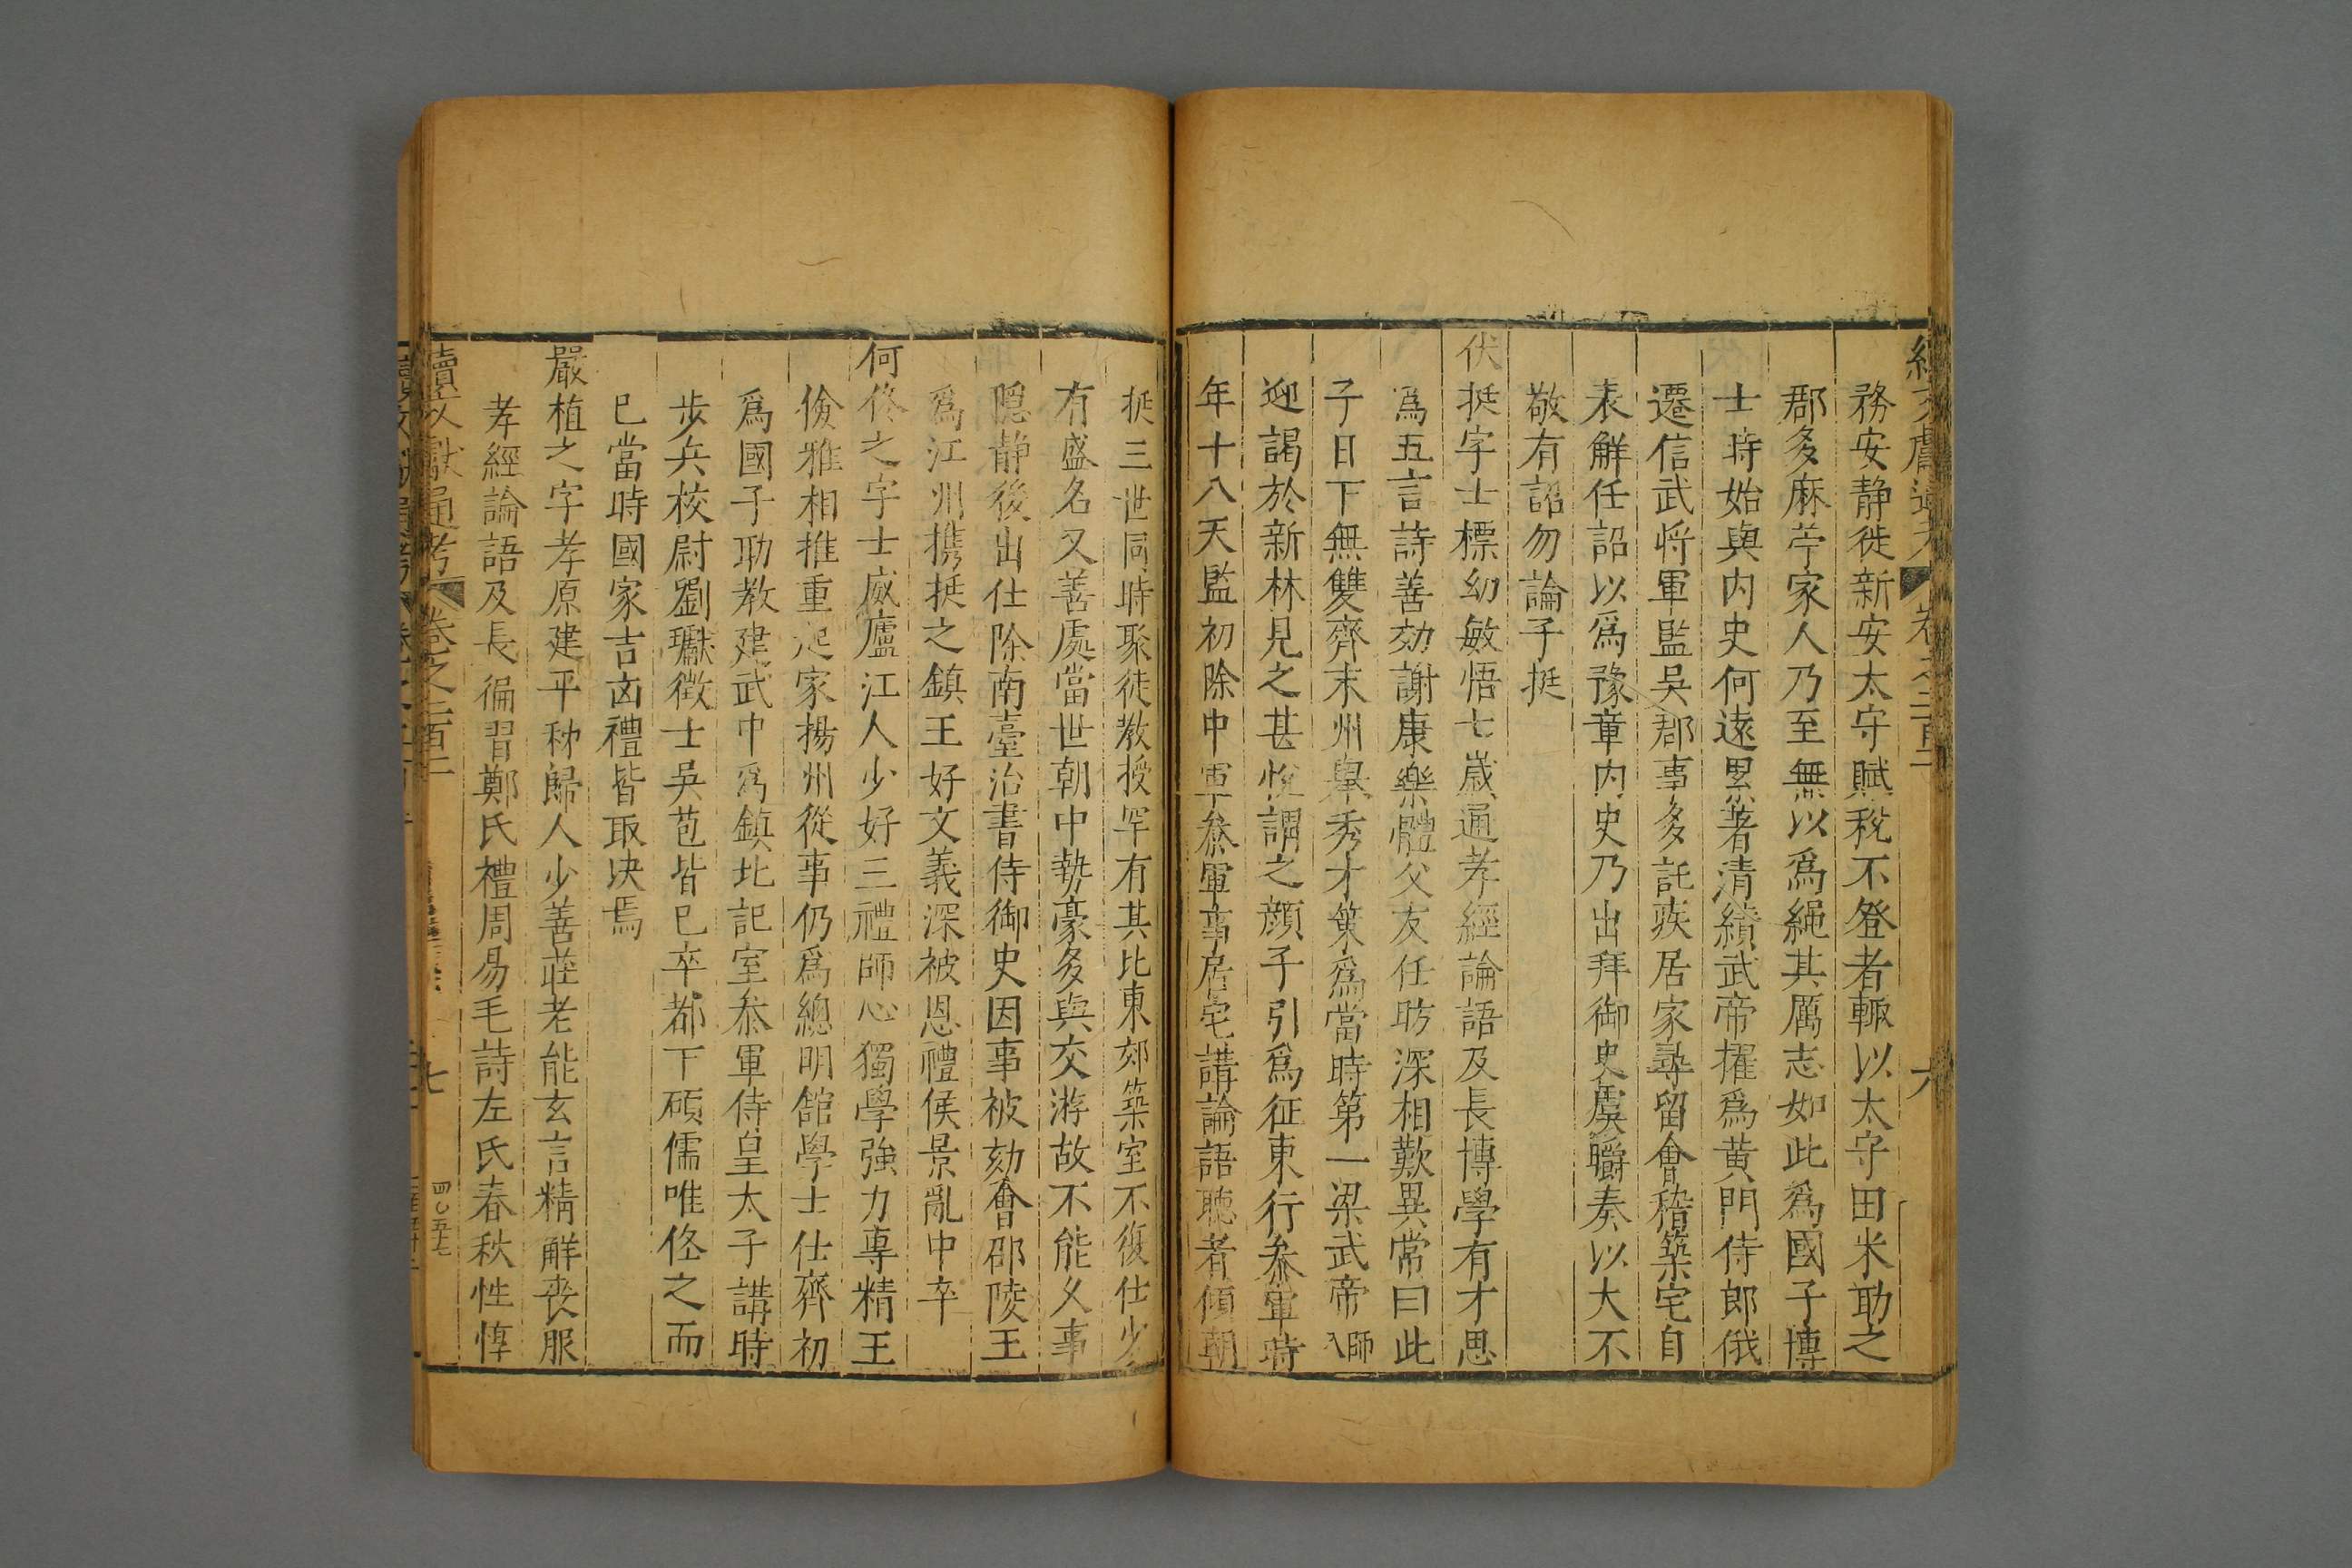 務安静徙新安太守賦稅不登者輙以太守田米助之
郡多麻苧家人乃至無以爲繩其厲志如此爲國子博
士時始與内史何遠累著清績武帝擢爲黄門侍郎俄
遷信武将軍監吳郡事多託疾居家尋留會稽築宅自
表解任詔以爲豫章内史乃出拜御史虞㬭奏以大不
敬有詔勿論子挺
伏挺字士標幼敏悟七歲通孝經論語及長博學有才思
爲五言詩善効謝康樂體父友任昉深相歎異常曰此
子日下無雙齊末州舉秀才策爲當時第一梁武帝師入
迎謁於新林見之甚悅謂之顏子引爲征東行叅軍時
年十八天監初除中軍叅軍事居宅講論語聽者傾朝
挺三世同時聚徒教授罕有其比東郊築室不復仕少
有盛名又善處當世朝中勢豪多與交游故不能乆事
隱静後出仕除南臺治書侍御史因事被劾會邵陵王
爲江州携挺之鎮王好文義深被恩禮侯景亂中卒
何佟之字士威廬江人少好三禮師心獨學強力專精王
儉雅相推重起家揚州從事仍爲總明館學士仕齊初
爲國子助教建武中爲鎮北記室叅軍侍皇太子講時
步兵校尉劉瓛徵士吳苞皆巳卒都下碩儒唯佟之而
巳當時國家吉凶禮皆取决焉
嚴植之字孝原建平秭歸人少善莊老能玄言精解喪服
孝經論語及長徧習鄭氏禮周易毛詩左氏春秋性惇
續文獻通考 卷之二百二 七 四〇五七